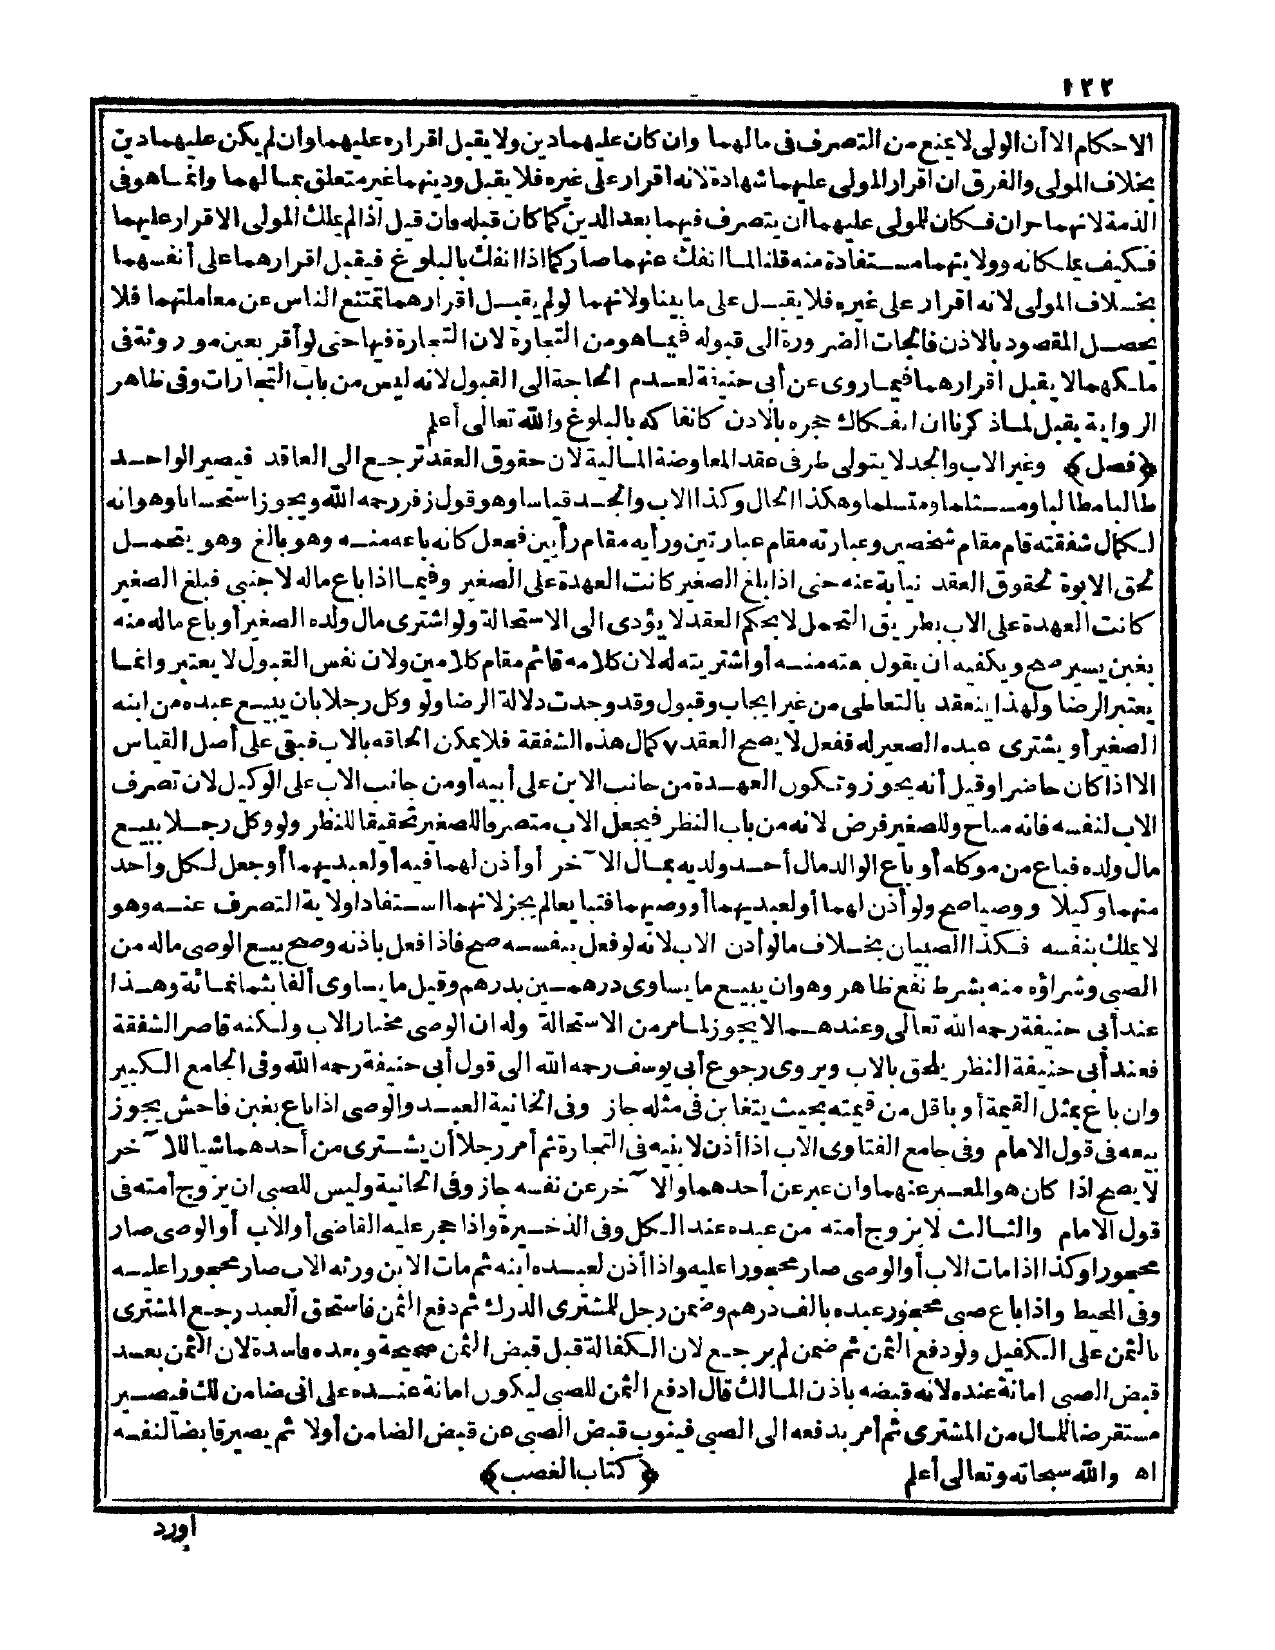 ١٢٢
الاحكام الا أن الولى لا يمنع من التصرف فى مالهما وان كان عليهما دين ولا يقبل اقراره عليهما وان لم يكن عليهما دين
بخلاف المولى والفرق ان اقرار المولى عليهما شهادة لانه اقرار على غيره فلا يقبل ودينهما غير متعلق بمالهما وانما هو فى
الذمة لانهما حران فكان للمولى عليهما أن يتصرف فيهما بعد الدين كما كان قبله فان قيل اذا لم يملك المولى الاقرار عليهما
فكيف يملكانه وولايتهما مستفادة منه قلنا لما انفك عنهما صار كما اذا انفك بالبلوغ فيقبل اقرارهما على أنفسهما
بخلاف المولى لانه اقرار على غيره فلا يقبل على ما بينا ولانهما لو لم يقبل اقرارهما تمتنع الناس عن معاملتهما فلا
يحصل المقصود بالاذن فالجات الضرورة الى قبوله فيما هو من التجارة لان التجارة فيها حتى لو أقر بعين موروثة فى
ملكهما لا يقبل اقرارهما فيما روى عن أبى حنيفة لعدم الحاجة الى القبول لانه ليس من باب التجارات وفى ظاهر
الرواية يقبل لما ذكرنا ان انفكاك حجره بالاذن كانفاكه بالبلوغ والله تعالى أعلم
﴿فصل﴾ وغير الاب والجد لا يتولى طرفى عقد المعاوضة المالية لان حقوق العقد ترجع الى العاقد فيصير الواحد
طالبا مطالبا ومسلما ومتسلما وهكذا الحال وكذا الاب والجد قياسا وهو قول زفر رحمه الله ويجوز استحسانا وهو انه
لكمال شفقته قام مقام شخصين وعبارته مقام عبارتين ورأيه مقام رأيين فجعل كانه باعه منه وهو بالغ وهو يتحمل
بحق الابوة لحقوق العقد نيابة عنه حتى اذا بلغ الصغير كانت العهدة على الصغير وفيما اذا باع ماله لاجنبى فبلغ الصغير
كانت العهدة على الاب بطريق التحمل لا بحكم العقد لا يؤدى الى الاستحالة ولو اشترى مال ولده الصغير أو باع ماله منه
بغبن يسير صح ويكفيه ان يقول بعته منه أو اشتريته له لان كلامه قائم مقام كلامين ولان نفس القبول لا يعتبر وانما
يعتبر الرضا ولهذا ينعقد بالتعاطى من غير ايجاب وقبول وقد وجدت دلالة الرضا ولو وكل رجلا بان يبيع عبده من ابنه
الصغير أو يشترى عبده الصغير له ففعل لا يصح العقد ٧ كمال هذه الشفقة فلا يمكن الحاقه بالاب فبقى على أصل القياس
الا اذا كان حاضرا وقيل أنه يجوز وتكون العهدة من جانب الابن على أبيه أو من جانب الاب على الوكيل لان تصرف
الاب لنفسه فانه مباح وللصغير فرض لانه من باب النظر فيجعل الاب متصرفا للصغير تحقيقا للنظر ولو وكل رجلا يبيع
مال ولده فباع من موكله أو باع الوالد مال أحد ولديه بمال الآخر أو أذن لهما فيه أو لعبديهما أو جعل لكل واحد
منهما وكيلا ووصيا صح ولو أذن لهما أو لعبديهما أو وصيهما فتبايعا لم يجز لانهما استفادا ولاية التصرف عنه وهو
لا يملك بنفسه فكذا الصبيان بخلاف ما لو أذن الاب لانه لو فعل بنفسه صح فاذا فعل باذنه وصح بيع الوصى ماله من
الصبى وشراؤه منه بشرط نفع ظاهر وهو ان يبيع ما يساوى درهمين بدرهم وقيل ما يساوى ألفا بثمانمائة وهذا
عند أبى حنيفة رحمه الله تعالى وعندهما لا يجوز لما مر من الاستحالة وله ان الوصى مختار الاب ولكنه قاصر الشفقة
فعند أبى حنيفة النظر يلحق بالاب ويروى رجوع أبى يوسف رحمه الله الى قول أبى حنيفة رحمه الله وفى الجامع الكبير
وان باع بمثل القيمة أو باقل من قيمته بحيث يتغابن فى مثله جاز وفى الخانية العبد والوصى اذا باع بغبن فاحش يجوز
بيعه فى قول الامام وفى جامع الفتاوى الاب اذا أذن لابنيه فى التجارة ثم أمر رجلا أن يشترى من أحدهما شيا للآخر
لا يصح اذا كان هو المعبر عنهما وان عبر عن أحدهما والآخر عن نفسه جاز وفى الخانية وليس للصبى ان يزوج أمته فى
قول الامام والثالث لا يزوج أمته من عبده عند الكل وفى الذخيرة واذا حجر عليه القاضى أو الاب أو الوصى صار
محجورا وكذا اذا مات الاب أو الوصى صار محجورا عليه واذا أذن لعبده ابنه ثم مات الابن ورثه الاب صار محجورا عليه
وفى المحيط واذا باع صبى محجور عبده بالف درهم وضمن رجل للمشترى الدرك ثم دفع الثمن فاستحق العبد رجع المشترى
بالثمن على الكفيل ولو دفع الثمن ثم ضمن لم يرجع لان الكفالة قبل قبض الثمن صحيحة وبعده فاسدة لان الثمن بعد
قبض الصبى امانة عنده لانه قبضه باذن المالك قال ادفع الثمن للصبى ليكون امانة عنده على انى ضامن لك فيصير
مستقرضا للمال من المشترى ثم أمر بدفعه الى الصبى فينوب قبض الصبى عن قبض الضامن أولا ثم يصير قابضا لنفسه
اه والله سبحانه وتعالى أعلم ﴿كتاب الغصب﴾
اورد